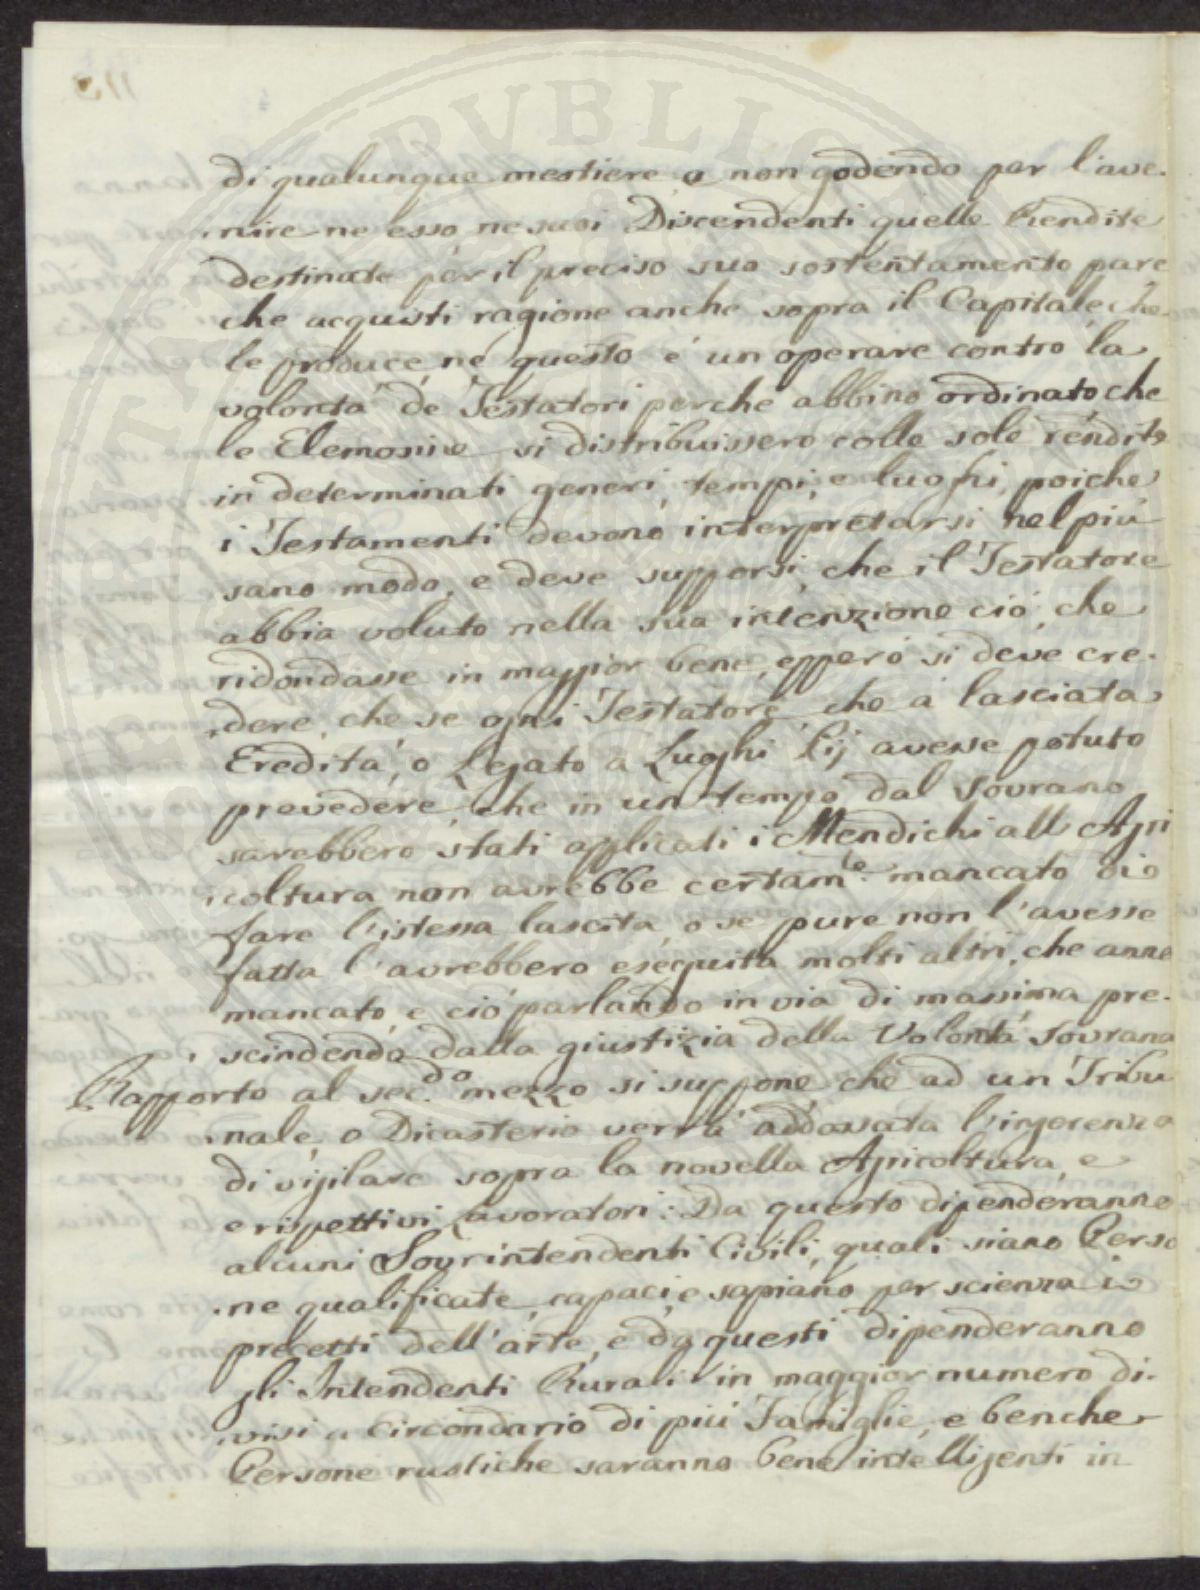 di qualunque mestiere e non godendo per l'ave-
nire ne esso ne suoi Discendenti quelle Rendite
destinate per il preciso suo sostentamento pare
che acqusti ragione anche sopra il Capitale che
le produce, ne questo é un operare contro la
volontá dé Testatori perche abbino ordinato che
le Elemosine si distribuissero colle sole rendite
in determinati generi, tempi, e luoghi, poiche
i Testamenti devono interpretarsi nel piú
sano modo, e deve supporsi, che il Testatore
abbia voluto nella sua intenzione ció, che
ridondasse in maggior bene, epperó si deve cre-
dere, che se ogni Testatore, che á lasciata
Ereditá, o Legato a Luoghi Pij avesse potuto
prevedere, che in un tempo dal Sovrano
sarebbero stati applicati i Mendichi all Agri
coltura non avrebbe certam.te mancato di
fare l'istessa lascita, o se pure non l'avesse
fatta l'avrebbero eseguita molti altri, che anno
mancato e ció parlando in via di massima pre-
scindendo dalla giustizia della Volontá Sovrana
Rapporto al sec.do mezzo si suppone che ad un Tribu
nale, o Dicasterio verrá addossata l'ingerenza
di vigilare sopra la novella Agricoltura, e
e rispettivi Lavoratori: Da questo dipenderanno
alcuni Sovrintendenti Civili, quali siano Perso
ne qualificate, capaci, e sapiano per scienza i
precetti dell'arte, e da questi dipenderanno
gli Intendenti Rurali in maggior numero di-
visi a circondario di piú Famiglie, e benche
Persone rustiche saranno bene intelligenti in
PUBLIC
113